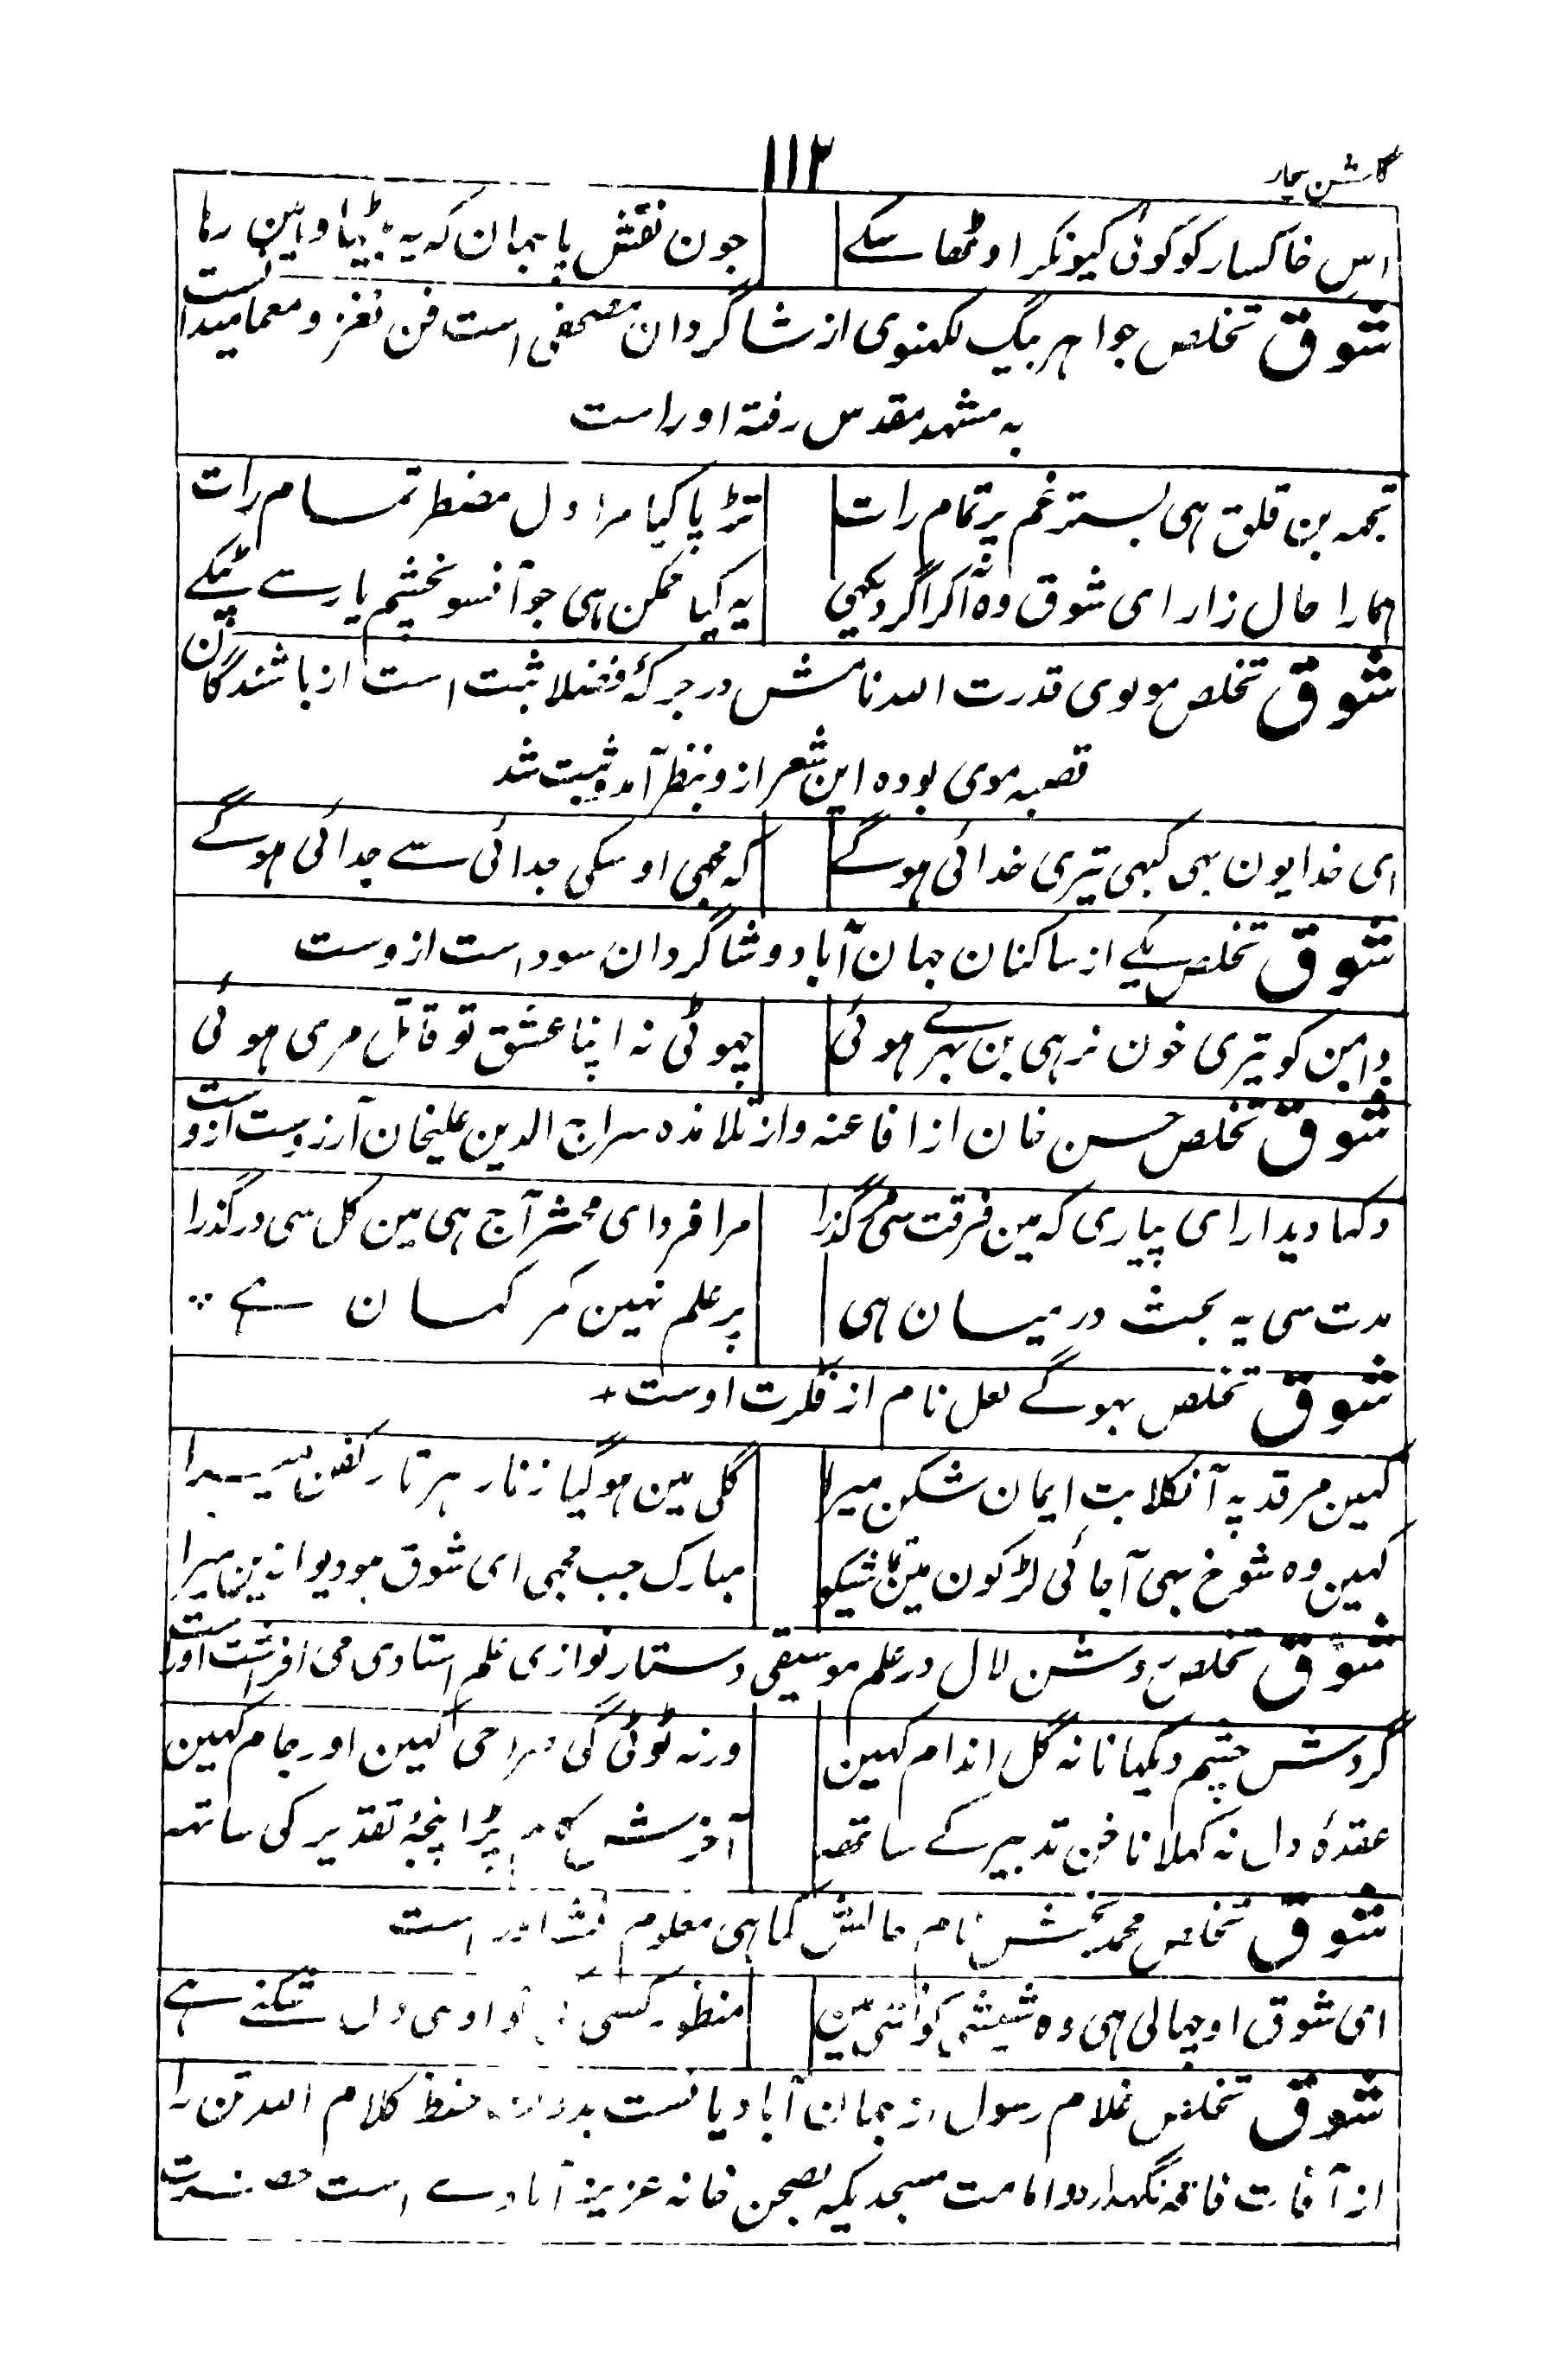 گلشن بیخار
۱۱۲
اس خاکسار کو کوئی کیونکر اوٹھا سکے جون نقش پا جہان کہ یہ بیٹھا وہین رہا
شوق تخلص جواہر بیگ لکہنوی از شاگردان مصحفی است فن نغز و معما میدانست
بہ مشہد مقدس رفتہ اوراست
تجھہ بن قلق ہی بستر غم پر تمام رات تڑپا کیا مرا دل مضطر تمام رات
ہمارا حال زار ای شوق وہ آکر اگر دیکہی یہ کیا ممکن ہی جو آنسو نہ چشم یار سے ٹپکے
شوق تخلص مولوی قدرت اللہ نامش در جرگۂ فضلا ثبت است از باشندگان
قصبہ موی بودہ این شعر ازو بنظر آمدہ ثبت شد
ای خدا یون بہی کبہی تیری خدائی ہوگے کہ مجہی اوسکی جدائی سے جدائی ہوگے
شوق تخلص یکے از ساکنان جہان آباد و شاگردان سودا ست ازوست
دامن کو تیری خون نہ ہی بن بہرے ہوئی چہوٹی نہ اپنا عشق تو قاتل مری ہوئی
شوق تخلص حسن خان از افاغنہ و از تلامذہ سراج الدین علیخان آرزوست ازوست
دکہا دیدار ای پیاری کہ مین فرقت سی مر گذرا مرا فردای محشر آج ہی مین کل سی در گذرا
مدت سی یہ بحث درمیسان ہی پر علم نہین کمر کہسان ہے
شوق تخلص بہوگے لعل نام از فکرت اوست
کہین مرقد پہ آ نکلا بت ایمان شکن میرا گلی مین ہوگیا زنار ہر تار کفن میرا
کہین وہ شوخ بہی آجائی لڑکون مین تماشیکو مبارک جب مجہی ای شوق ہو دیوانہ پن میرا
شوق تخلص روشن لال در علم موسیقی و ستار نوازی علم استادی می افراشت اوراست
گردش چشم دیکہانا نہ گل اندام کہین ورنہ ٹوٹی گی صراحی کہین اور جام کہین
عقدۂ دل نہ کہلا ناخن تدبیر کے ساتھہ آخرش کام پڑا پنجۂ تقدیر کی ساتہہ
شوق تخلص محمد بخش نام حالش کماہی معلوم نشد اوراست
ای شوق اوچہالی ہی وہ شیشی کو نشی مین منظور کسی تو اوسی دل شکنے ہے
شوق تخلص غلام رسول از جہان آبادیانست حفظ کلام اللہ تن را
از آفات نگہدارد و امامت مسجدیکہ بصحن خانہ عزیز آبادے است حضرت